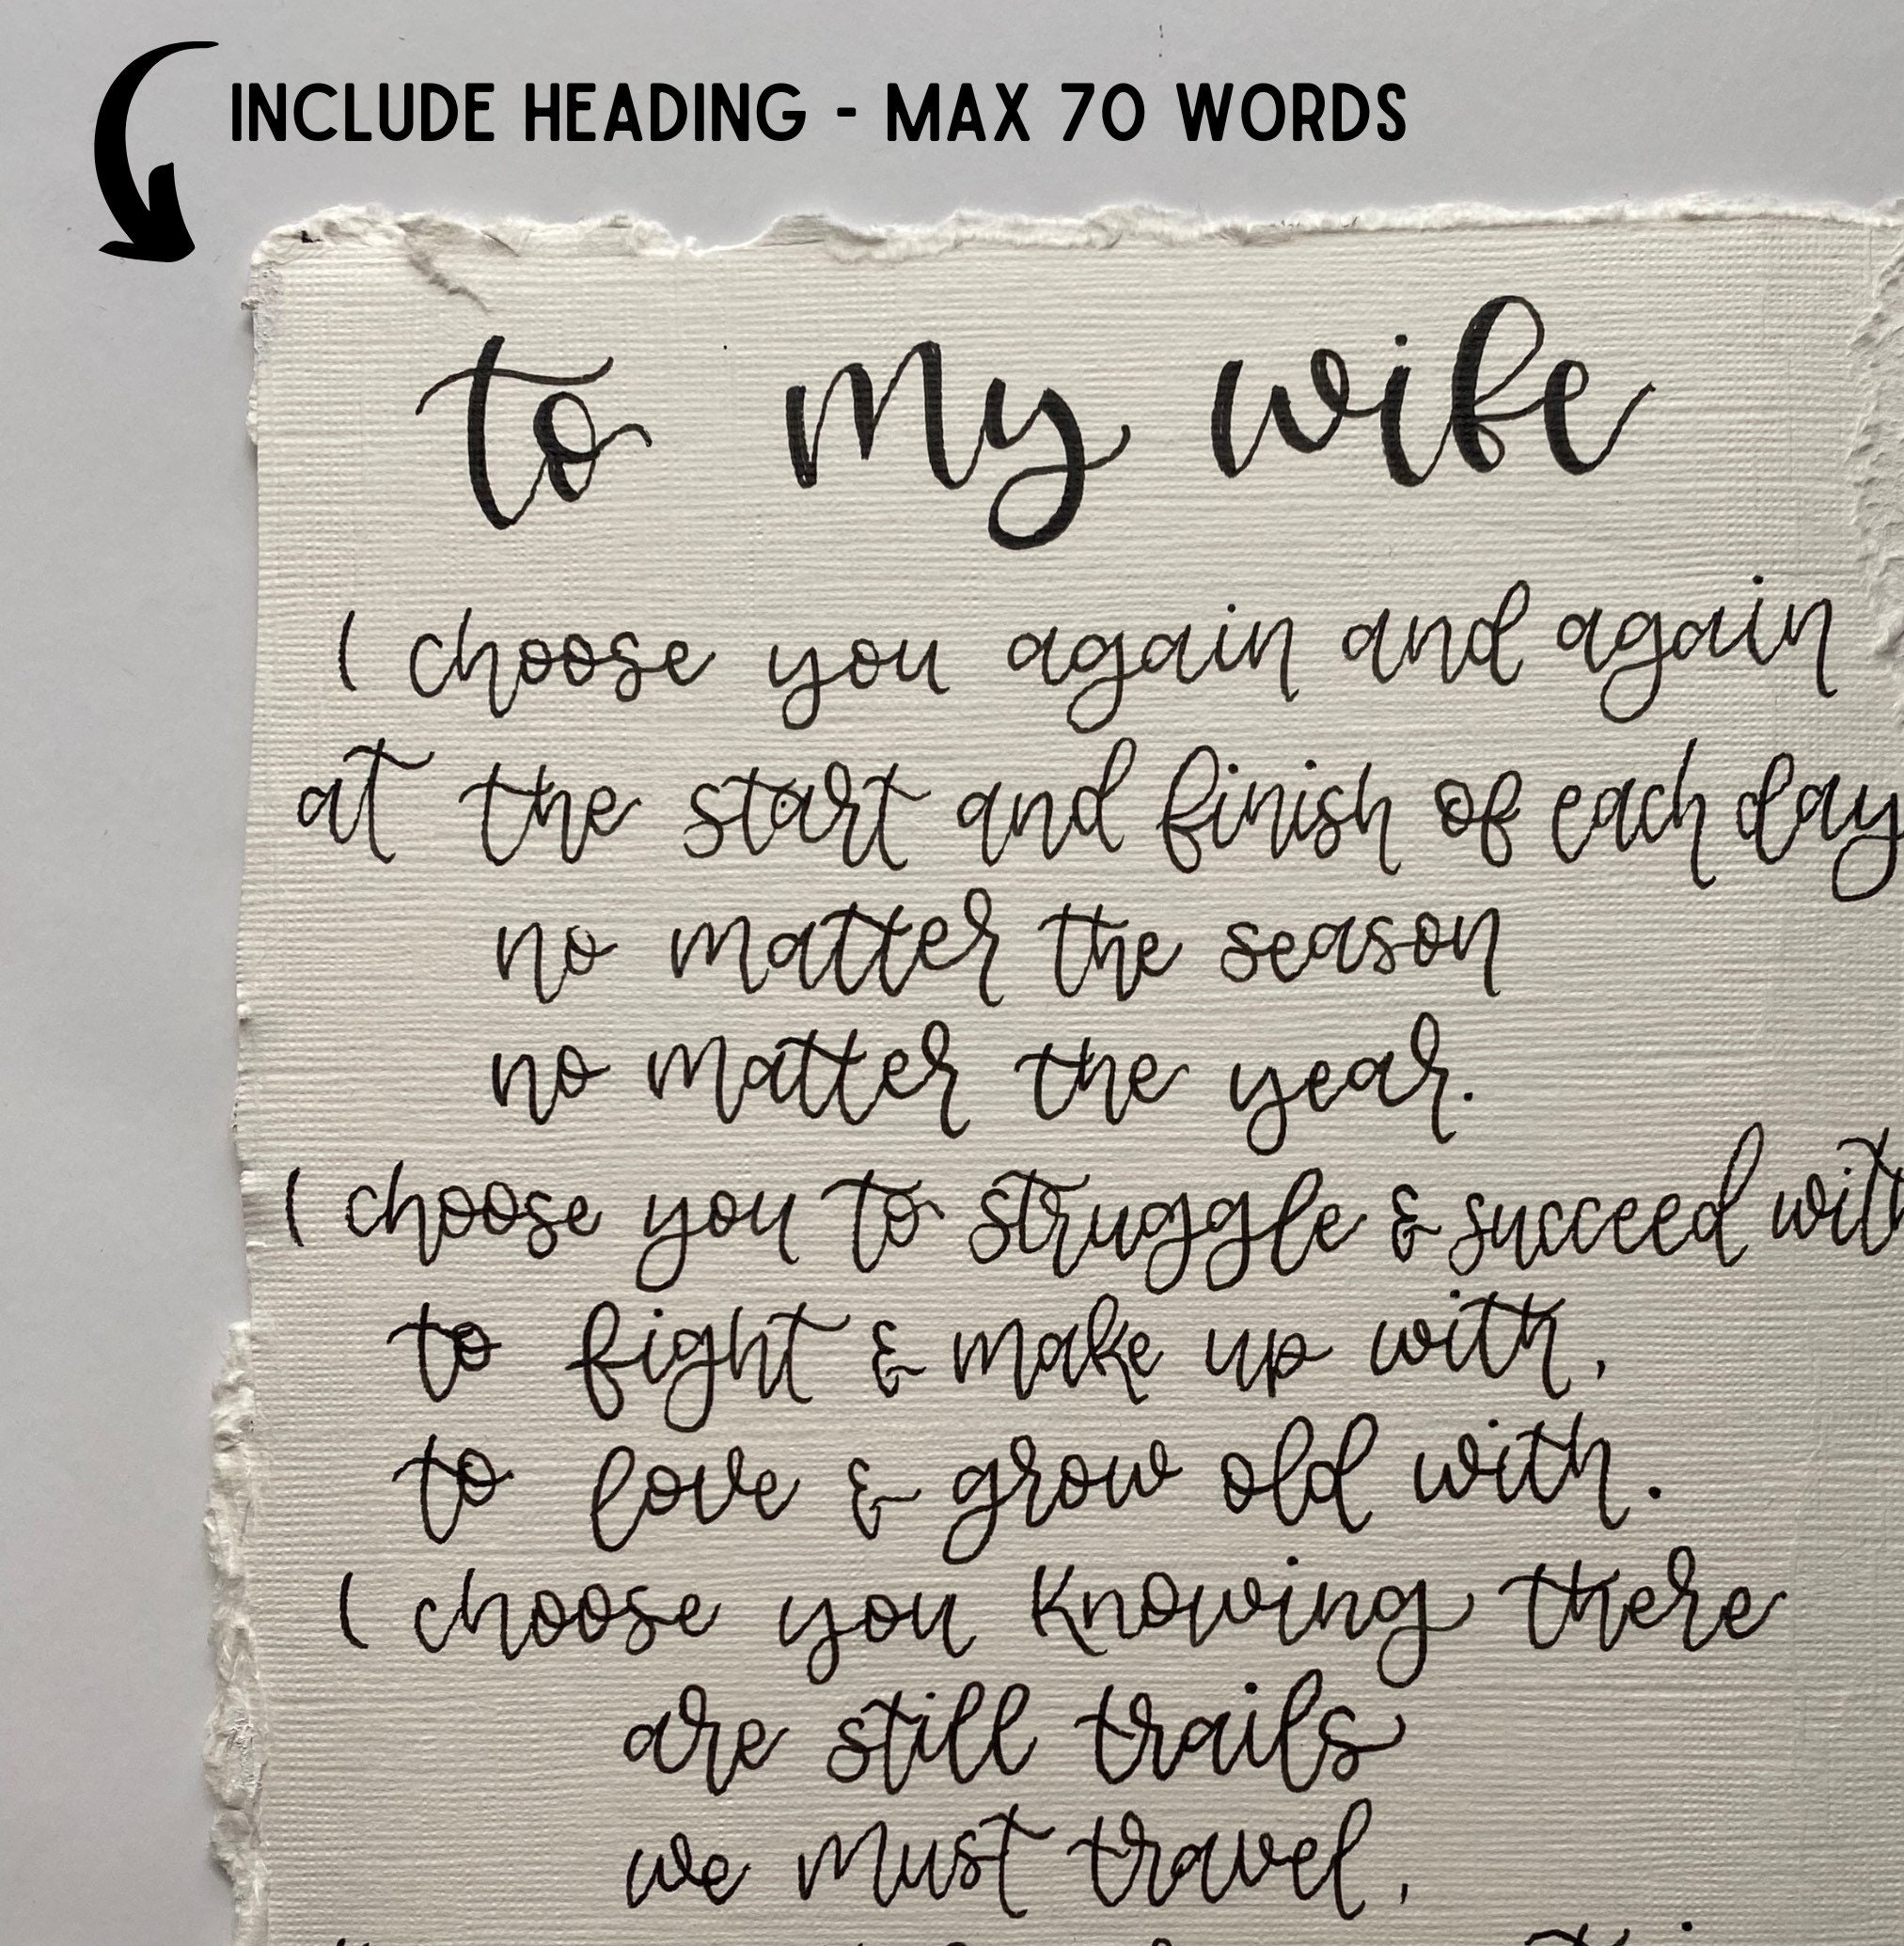 INCLUDE HEADING - MAX 70 WORDS
to my wife
I choose you again and again
at the start and finish of each day
no matter the season
no matter the year.
I choose you to struggle & succeed with
to fight & make up with,
to love & grow old with.
I choose you knowing there
are still trails
we must travel,